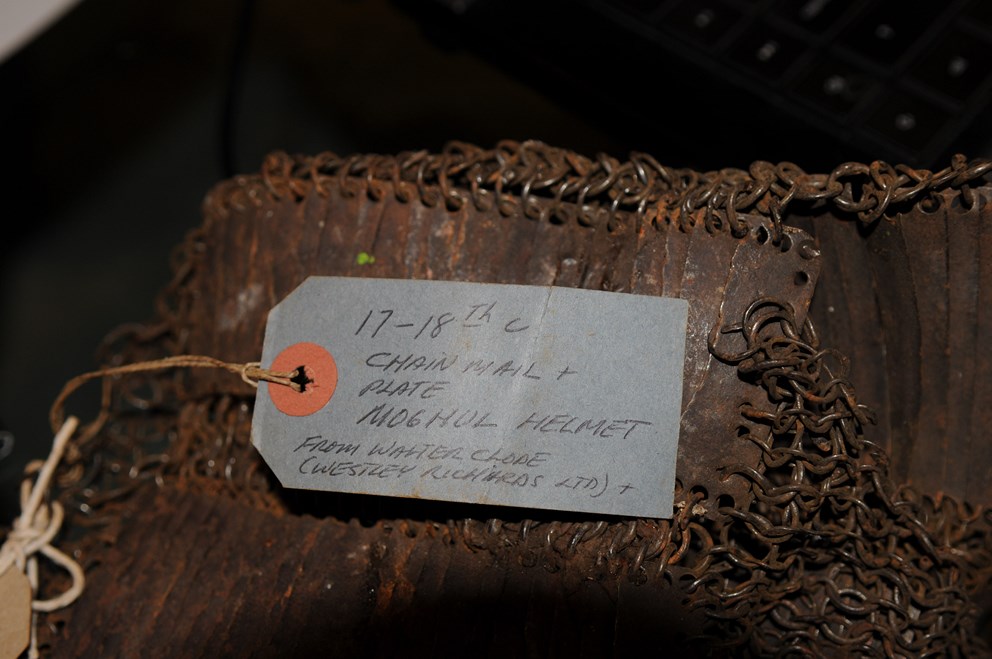 17-18th C
CHAIN MAIL +
PLATE
MOGHUL HELMET
FROM WALTER CLODE
(WESTLEY RICHARDS LTD) +